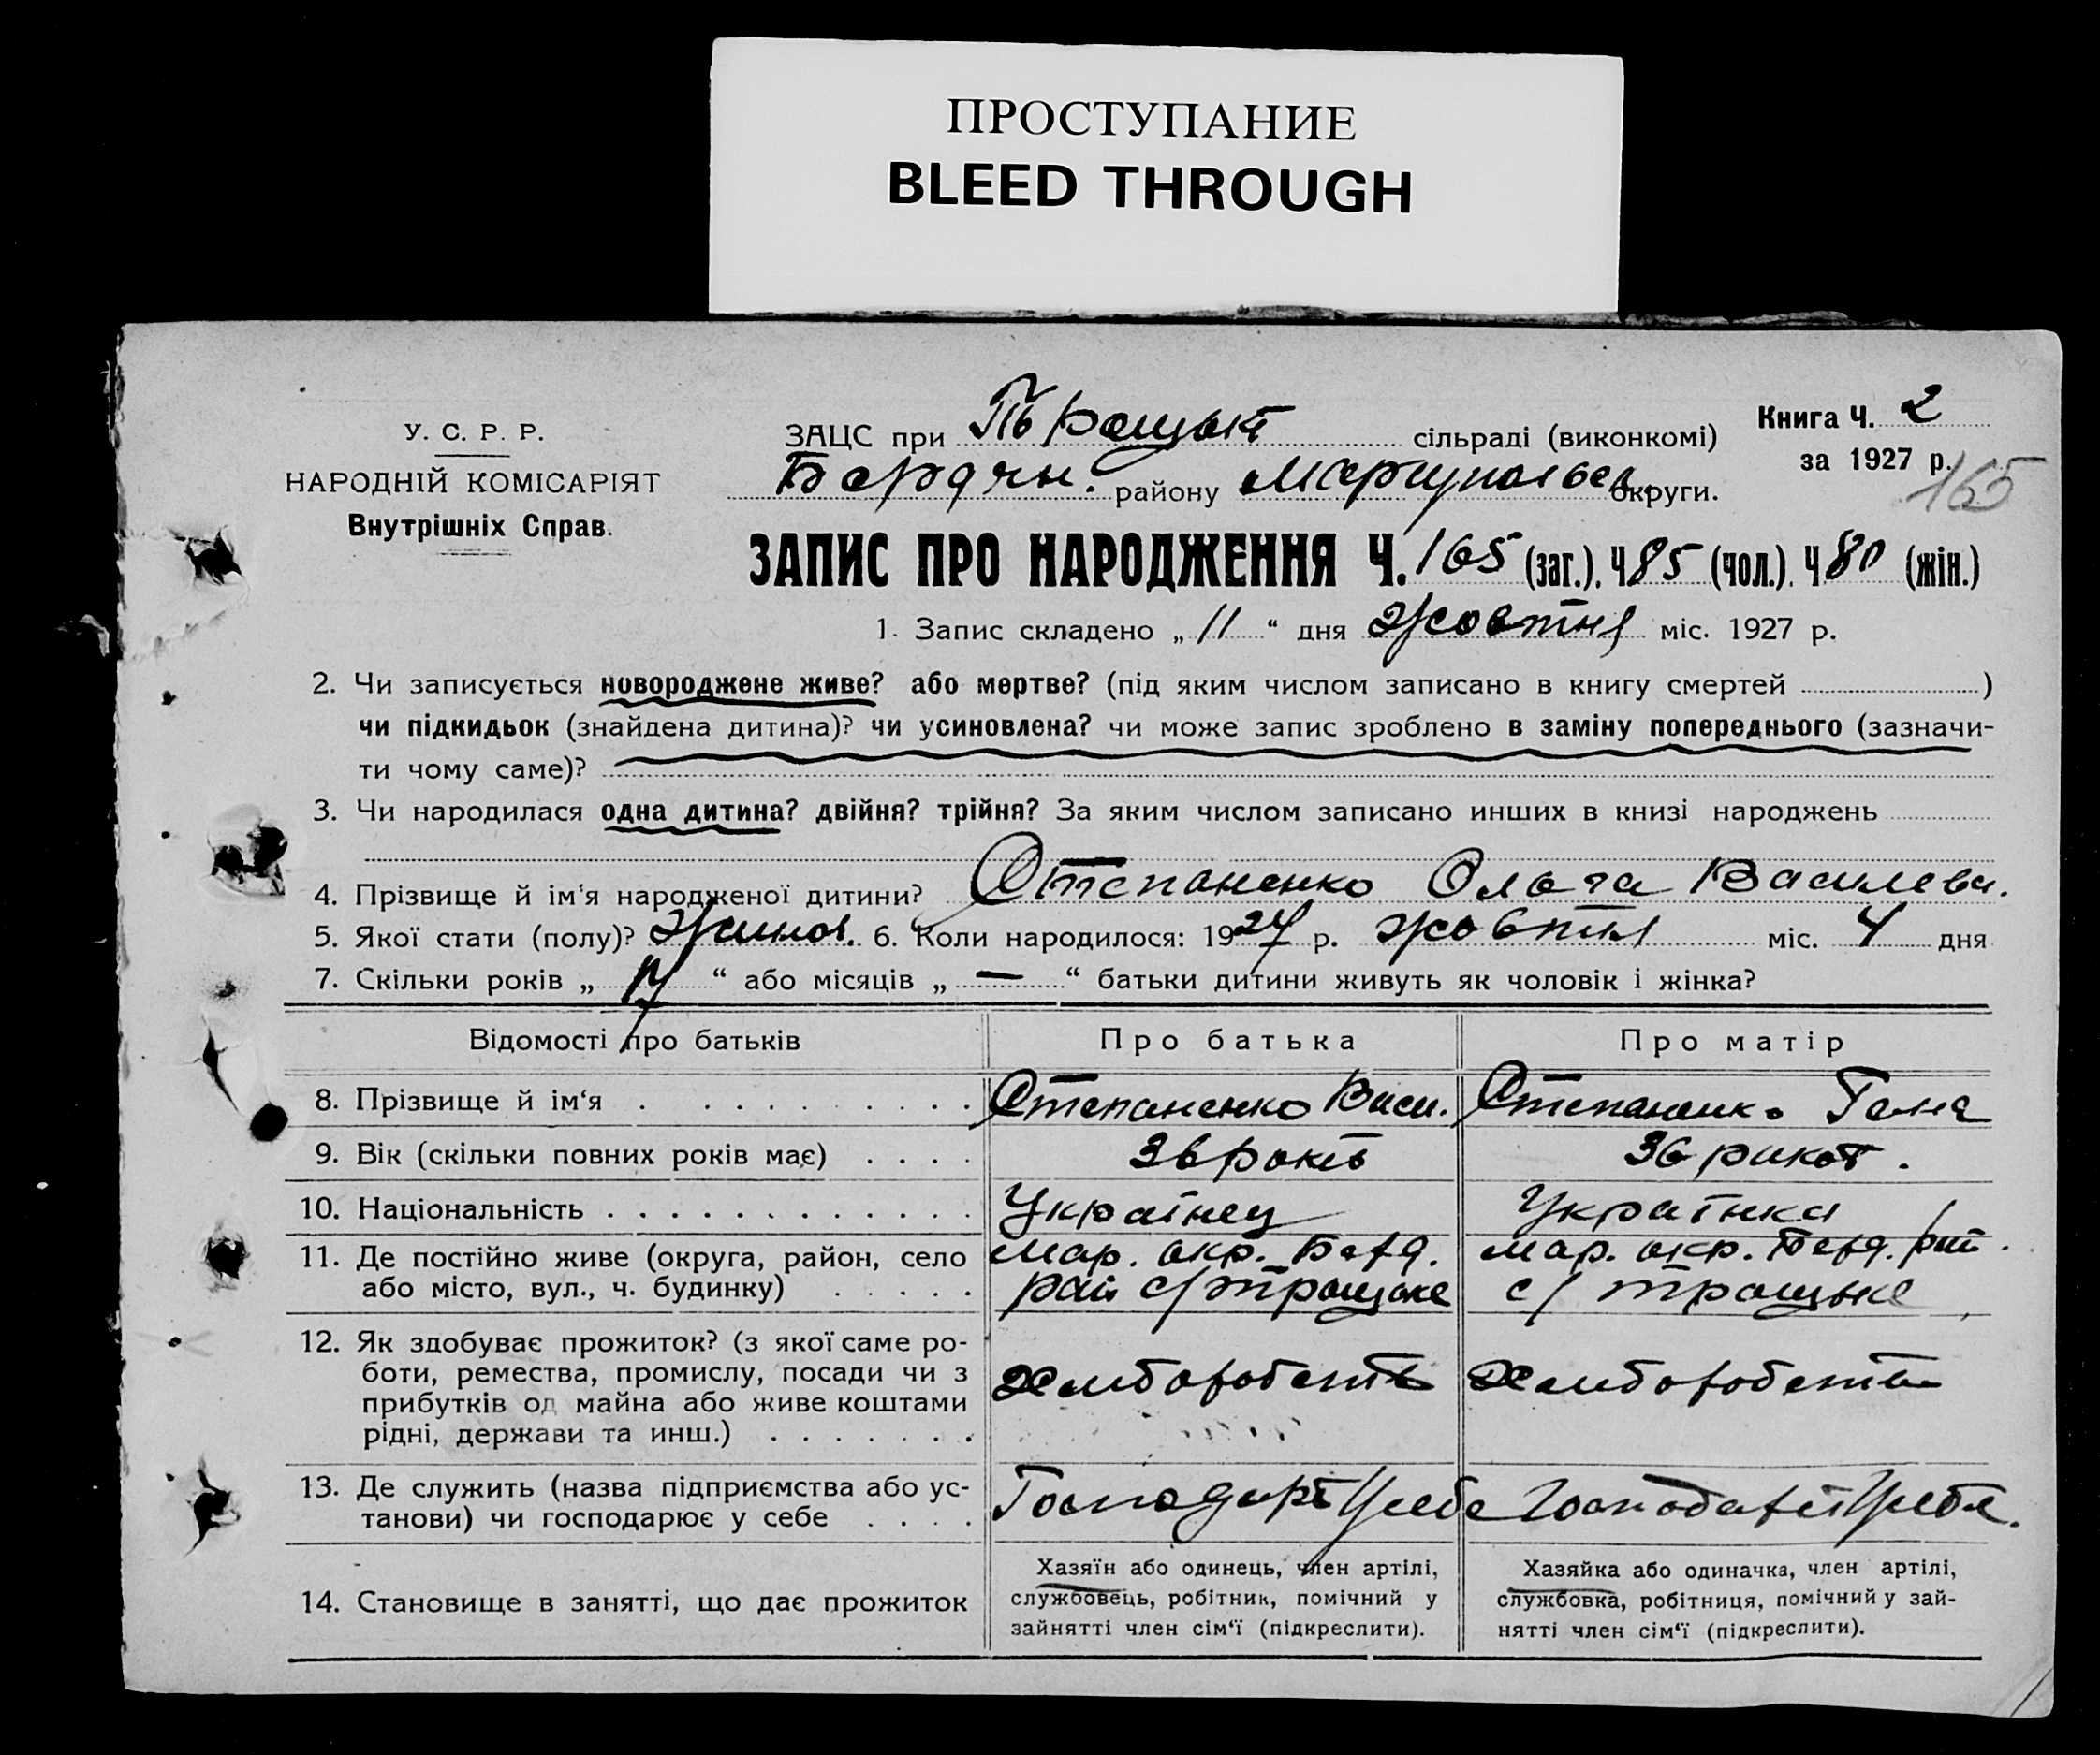 ПРОСТУПАНИЕ
BLEED THROUGH
У. С. Р. Р.
НАРОДНІЙ КОМІСАРІЯТ
Внутрішніх Справ.
ЗАЦС при Троцькій сільраді (виконкомі)
Бердян. району Маріупольськ округи.
Книга Ч. 2
за 1927 р.
165
ЗАПИС ПРО НАРОДЖЕННЯ Ч. 165 (заг.). Ч 85 (чол.). Ч 80 (жін.)
1. Запис складено „ 11 “ дня жовтня міс. 1927 р.
2. Чи записується новороджене живе? або мертве? (під яким числом записано в книгу смертей )
чи підкидьок (знайдена дитина)? чи усиновлена? чи може запис зроблено в заміну попереднього (зазначи-
ти чому саме)?
3. Чи народилася одна дитина? двійня? трійня? За яким числом записано инших в книзі народжень
4. Прізвище й ім‘я народженої дитини? Степаненко Ольга Василева.
5. Якої стати (полу)? жинов. 6. Коли народилося: 1927 р. жовтня міс. 4 дня
7. Скільки років „ 17 “ або місяців „ — “ батьки дитини живуть як чоловік і жінка?
Відомості про батьків Про батька Про матір
8. Прізвище й ім‘я Степаненко Васи. Степаненко Ганна
9. Вік (скільки повних років має) 36 років 36 років.
10. Національність Українец Українка
11. Де постійно живе (округа, район, село
або місто, вул., ч. будинку)
Мар. окр. Берд.
рай с/Троцьке
Мар. окр. Берд. рай.
с/ Троцьке
12. Як здобуває прожиток? (з якої саме ро-
боти, ремества, промислу, посади чи з
прибутків од майна або живе коштами
рідні, держави та инш.)
Хлиборобств
Хлиборобства
13. Де служить (назва підприємства або ус-
танови) чи господарює у себе
Господарі у себе
Господарі у себе.
14. Становище в занятті, що дає прожиток
Хазяїн або одинець, член артілі,
службовець, робітник, помічний у
зайнятті член сім‘ї (підкреслити).
Хазяйка або одиначка, член артілі,
службовка, робітниця, помічний у зай-
нятті член сім‘ї (підкреслити).